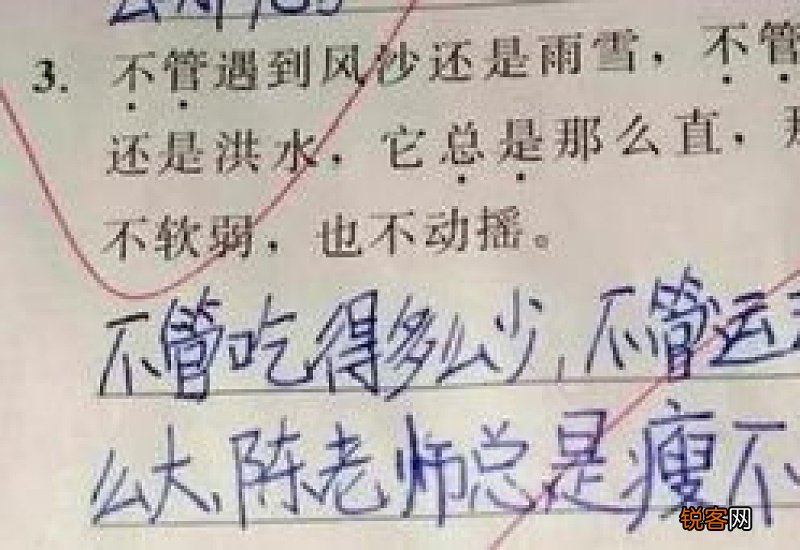 3. 不管遇到风沙还是雨雪，不管
还是洪水，它总是那么直，
不软弱，也不动摇。
不管吃得多么少，不管运
么大，陈老师总是瘦不
锐客网